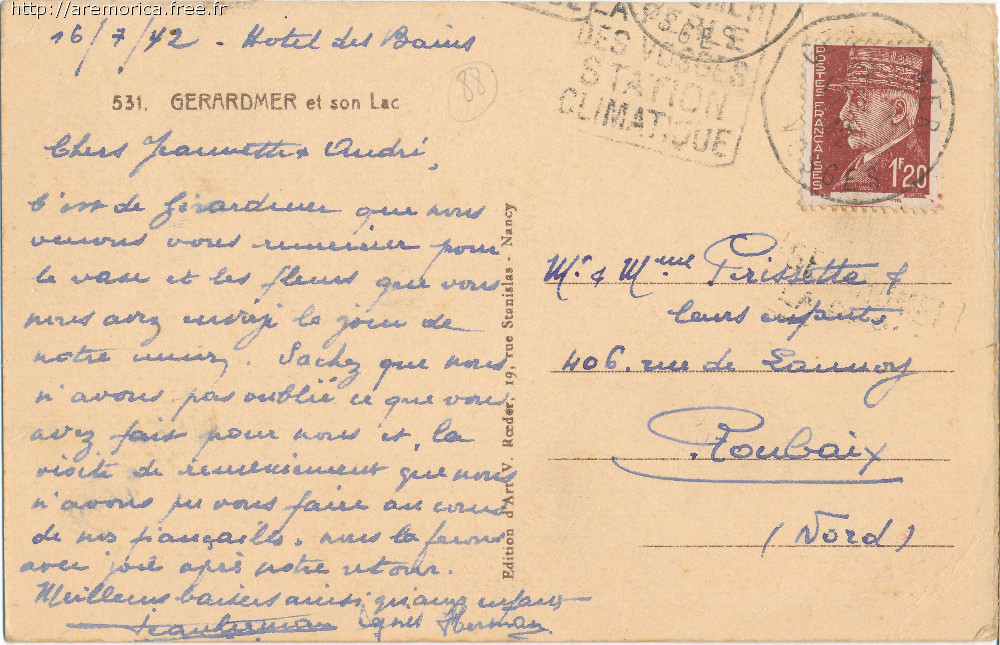 http://aremorica.free.fr
16/7/42 - Hotel des Bains
88
531. GERARDMER et son Lac
Chers Jeannette & André,
C'est de Gérardmer que nous
venons vous remercier pour
le vase et les fleurs que vous
nous avez envoyé le jour de
notre union. Sachez que nous
n'avons pas oublié ce que vous
avez fait pour nous et, la
visite de remerciement que nous
n'avons pu vous faire au cours
de nos fiançailles, nous la ferons
avec joie après notre retour.
Meilleurs baisers ainsi qu'aux enfants
Agnès Herman
Edition d'Art V. Rœder, 19, rue Stanislas - Nancy
DES VOSGES
STATION
CLIMATIQUE
VOSGES
POSTES FRANÇAISES
1F20
Mr & Mme Prissette &
leurs enfants
406. rue de Lannoy
Roubaix
(Nord)